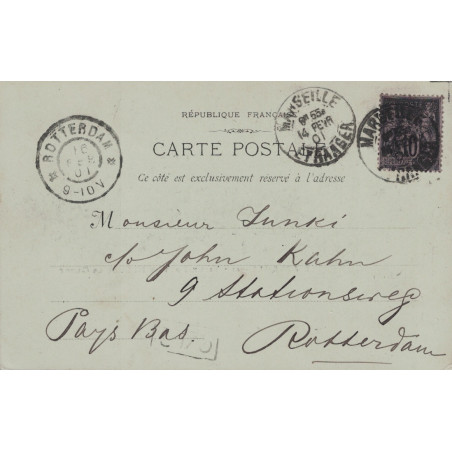 RÉPUBLIQUE FRANÇAISE
CARTE POSTALE
Ce côté est exclusivement réservé à l'adresse
ROTTERDAM
16
FEB
01
9-10V
MARSEILLE
14 FEVR
01
ETRANGER
MARSEILLE
10
Monsieur
c/o John Kahn
9 Stationsweg
Pays Bas.
Rotterdam